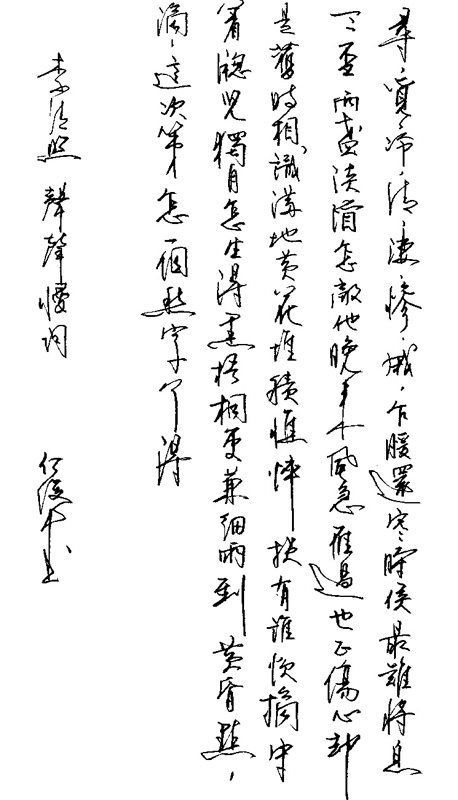 尋、覓、冷、清、淒、慘、戚、乍暖還寒時候最難將息
三盃兩盞淡酒怎敵他晚來風急雁過也正傷心卻
是舊時相識滿地黃花堆積憔悴損有誰忺摘守
著牕兒獨自怎生得黑梧桐更兼細雨到黃昏點、
滴、這次第怎一個愁字了得
李清照 聲聲慢詞